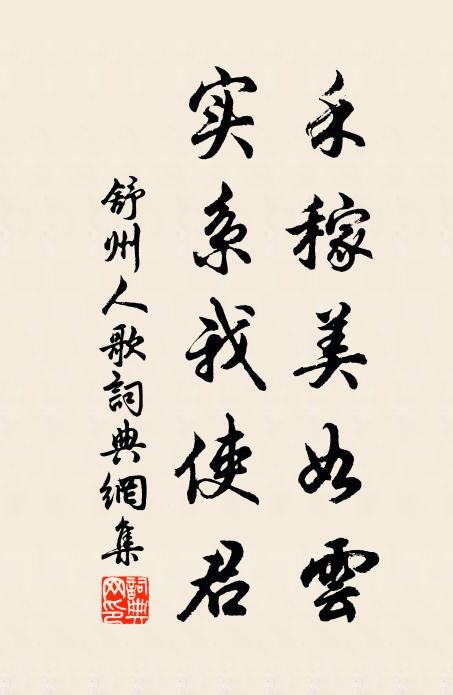 禾稼美如雲
实系我使君
舒州人歌詞典網集
詞典网印